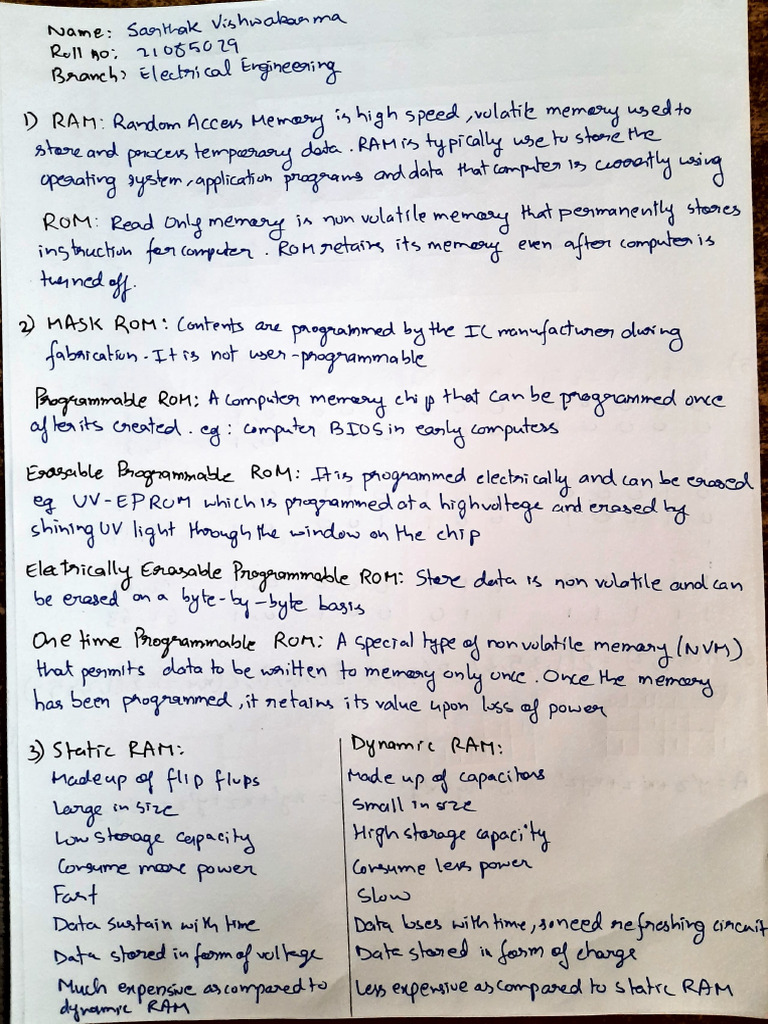 Name: Sarthak Vishwakarma
Roll no: 21085029
Branch: Electrical Engineering
1) RAM: Random Access Memory is high speed, volatile memory used to
store and process temporary data. RAM is typically use to store the
operating system, application programs and data that computer is currently using
ROM: Read Only memory is non volatile memory that permanently stores
instruction for computer. ROM retains its memory even after computer is
turned off.
2) MASK ROM: Contents are programmed by the IC manufacturer during
fabrication. It is not user-programmable
Programmable ROM: A computer memory chip that can be programmed once
after its created. eg: computer BIOS in early computers
Erasable Programmable ROM: It is programmed electrically and can be erased
eg UV-EPROM which is programmed at a high voltege and erased by
shining UV light through the window on the chip
Electrically Erasable Programmable ROM: Store data is non volatile and can
be erased on a byte-by-byte basis
One time Programmable ROM: A special type of non volatile memory (NVM)
that permits data to be written to memory only once. Once the memory
has been programmed, it retains its value upon loss of power
3) Static RAM:
Made up of flip flops
Large in size
Low storage capacity
Consume more power
Fast
Data sustain with time
Data stored in form of voltage
Much expensive as compared to
dynamic RAM
Dynamic RAM:
Made up of capacitors
Small in size
High storage capacity
Consume less power
Slow
Data loses with time, so need refreshing circuit
Data stored in form of charge
Less expensive as compared to static RAM